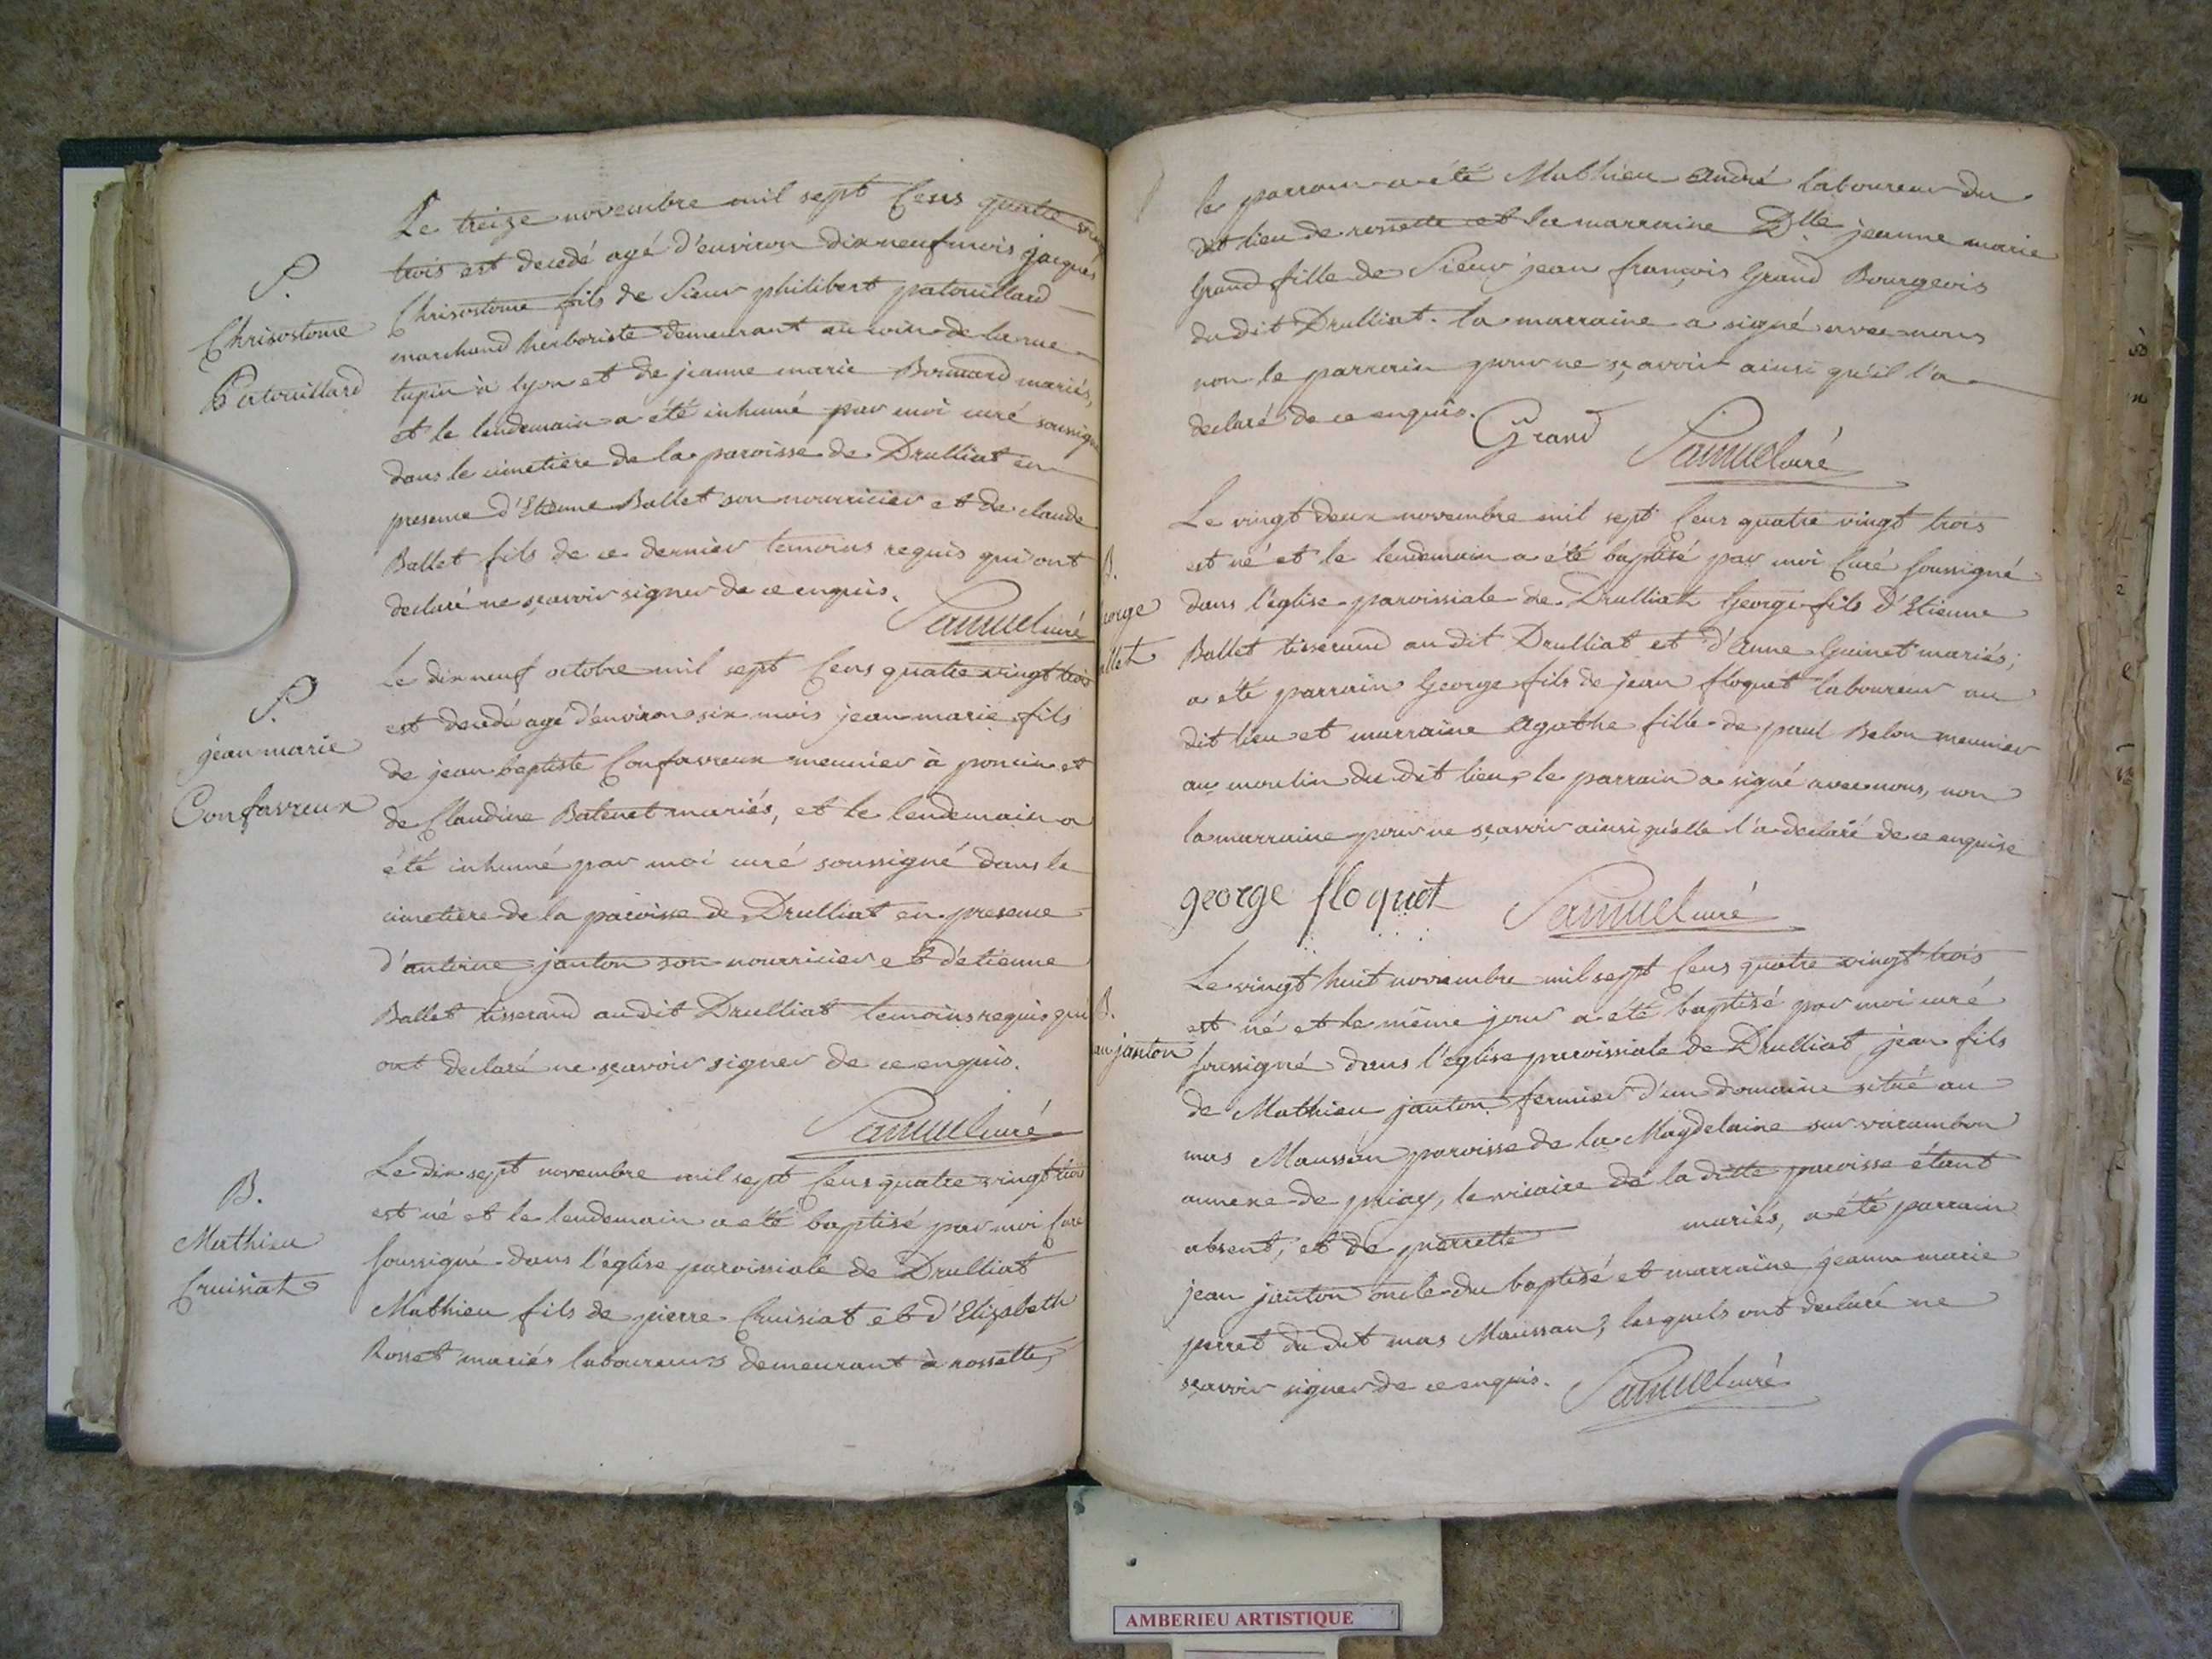 S.
Chrisostome
Patouillard
Le treize novembre mil sept Cens quatre ving
trois est decedé agé d'environ dix neuf mois jacques
Chrisostome fils de Sieur philibert patouillard
marchand herboriste demeurant au coin de la rue
tupin à lyon et de jeanne marie mariés,
et le lendemain a été inhumé par moi curé soussigné
dans le cimetiere de la paroisse de Drulliat en
presence d'Etienne Ballet son nourricier et de claude
Ballet fils de ce dernier temoins requis qui ont
declaré ne sçavoir signer de ce enquis.
Samuel curé
S.
jean marie
Confavreux
Le dix neuf octobre mil sept Cens quatre vingt trois
est decedé agé d'environ six mois jean marie fils
de jean baptiste Confavreux meunier à poncin et
de Claudine Batenet mariés, et le lendemain a
été inhumé par moi curé soussigné dans le
cimetiere de la paroisse de Drulliat en presence
d'antoine janton son nourricier et d'étienne
Ballet tisserand audit Drulliat temoins requis qui
ont declaré ne sçavoir signer de ce enquis.
Samuel curé
B.
Mathieu
Cruisiat
Le dix sept novembre mil sept Cens quatre vingt trois
est né et le lendemain a été baptisé par moi Curé
soussigné dans l'église paroissiale de Drulliat
Mathieu fils de pierre Cruisiat et d'Elizabeth
Rosset mariés laboureurs demeurant à rossette,
le parrain a été Mathieu andré laboureur du
dit lieu de rossette et la marraine Dlle jeanne marie
Grand fille de Sieur jean françois Grand Bourgeois
du dit Drulliat. la marraine a signé avec nous
non le parrain pour ne sçavoir ainsi qu'il l'a
declaré de ce enquis.
Grand Samuel curé
B.
eorge
allet
Le vingt deux novembre mil sept Cens quatre vingt trois
est né et le lendemain a été baptisé par moi Curé soussigné
dans l'église paroissiale de Drulliat George fils d'Etienne
Ballet tisserand audit Drulliat et d'anne Guinet mariés;
a été parrain George fils de jean floquet laboureur au
dit lieu et marraine agathe fille de paul Belon meunier
au moulin du dit lieu, le parrain a signé avec nous, non
la marraine pour ne sçavoir ainsi qu'elle l'a declaré de ce enquise
george floquet Samuel curé
B.
an janton
Le vingt huit novembre mil sept Cens quatre vingt trois
est né et le même jour a été baptisé par moi curé
soussigné dans l'église paroissiale de Drulliat jean fils
de Mathieu janton fermier d'un domaine situé au
mas Maussan paroisse de la Magdelaine sur varambon
annexe de priay, le vicaire de la ditte paroisse étant
absent, et de pierrette mariés, a été parrain
jean janton oncle du baptisé et marraine jeanne marie
perret du dit mas Maussan, lesquels ont declaré ne
sçavoir signer de ce enquis. Samuel curé
AMBERIEU ARTISTIQUE